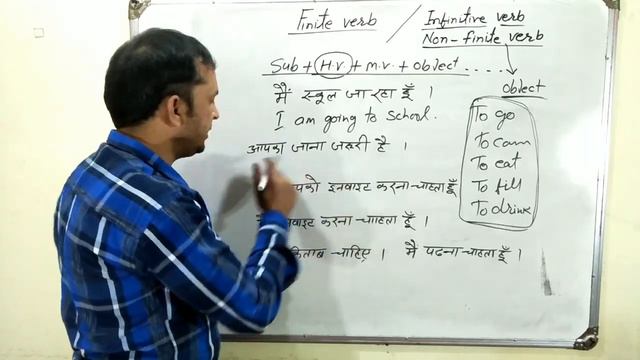 Finite verb / Infinitive verb
Non-finite verb
Sub + H.V + M.V. + Object.....
Object
मैं स्कूल जा रहा हूँ ।
I am going to school.
आपका जाना जरूरी है ।
इनवाइट करना चाहता हूँ
करना चाहता हूँ ।
चाहिए । मैं पढना चाहता हूँ ।
To go
To
To eat
To fill
To drink